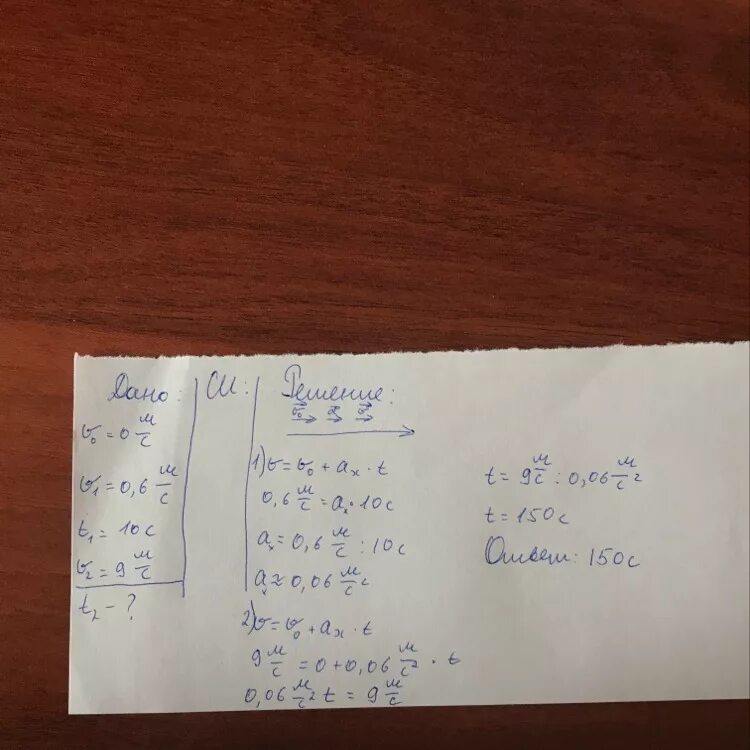 Дано:
υ₀ = 0 м/с
υ₁ = 0,6 м/с
t₁ = 10с
υ₂ = 9 м/с
t₂ - ?
СИ:
Решение:
υ₀
1) υ = υ₀ + aₓ · t
0,6 м/с = aₓ · 10с
aₓ = 0,6 м/с : 10с
aₓ ≈ 0,06 м/с²
2) υ = υ₀ + aₓ · t
9 м/с = 0 + 0,06 м/с² · t
0,06 м/с² t = 9 м/с
t = 9 м/с : 0,06 м/с²
t = 150с
Ответ: 150с